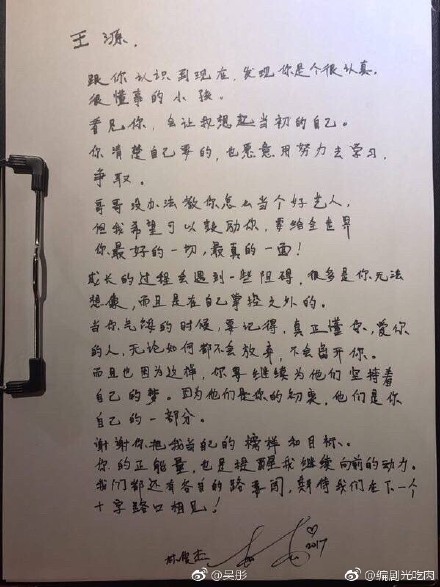 王源.
跟你认识到现在,发现你是个很认真.
很懂事的小孩。
看见你,会让我想起当初的自己。
你清楚自己要的,也愿意用努力去学习.
争取。
哥哥没办法教你怎么当个好艺人,
但我希望可以鼓励你,带给全世界
你最好的一切,最真的一面!
成长的过程会遇到一些阻碍,很多是你无法
想像,而且是在自己掌控之外的。
当你气馁的时候,要记得,真正懂你、爱你
的人,无论如何都不会放弃,不会离开你。
而且也因为这样,你要继续为他们坚持着
自己的梦。因为他们是你的约束,他们是你
自己的一部分。
谢谢你把我当自己的榜样和目标、
你的正能量,也是提醒我继续向前的动力。
我们都还有各自的路要闯,期待我们在下一个
十字路口相见!
林俊杰
2017
@吴彤
@编剧光吃肉